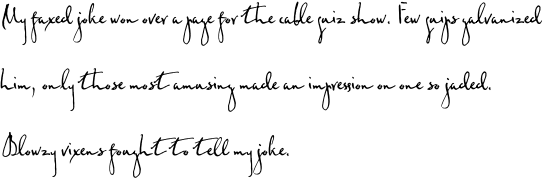 My faxed joke won over a page for the cable quiz show. Few quips galvanized
him, only those most amusing made an impression on one so jaded.
Blowzy vixens fought to tell my joke.